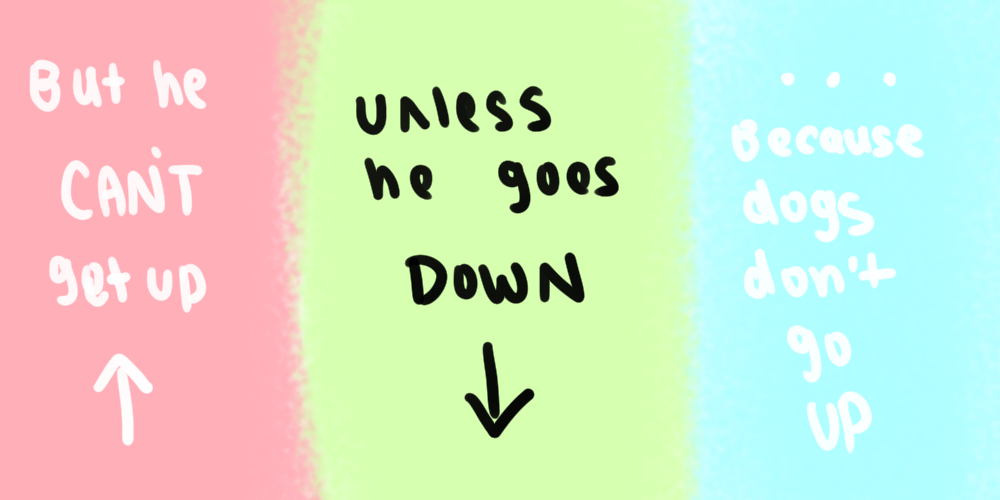 But he
CAN'T
get up
unless
he goes
DOWN
...
Because
dogs
don't
go
UP